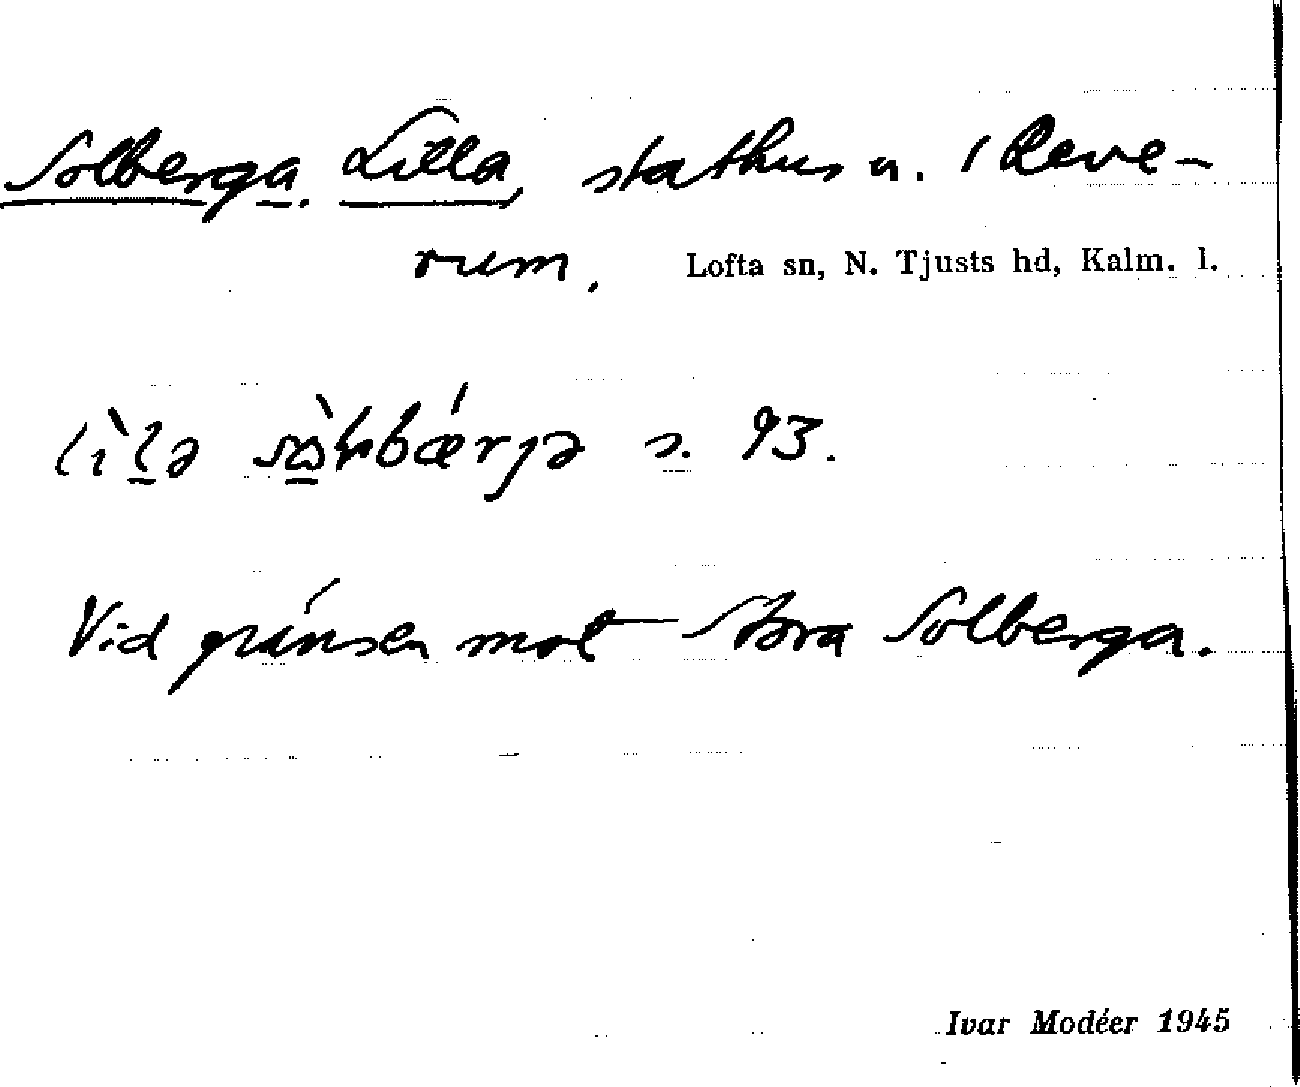 Solberga. Lilla, stathus u. 1 Reve-
rum. Lofta sn, N. Tjusts hd, Kalm. l.
s. 93.
Vid gränsen mot Stora Solberga.
Ivar Modéer 1945